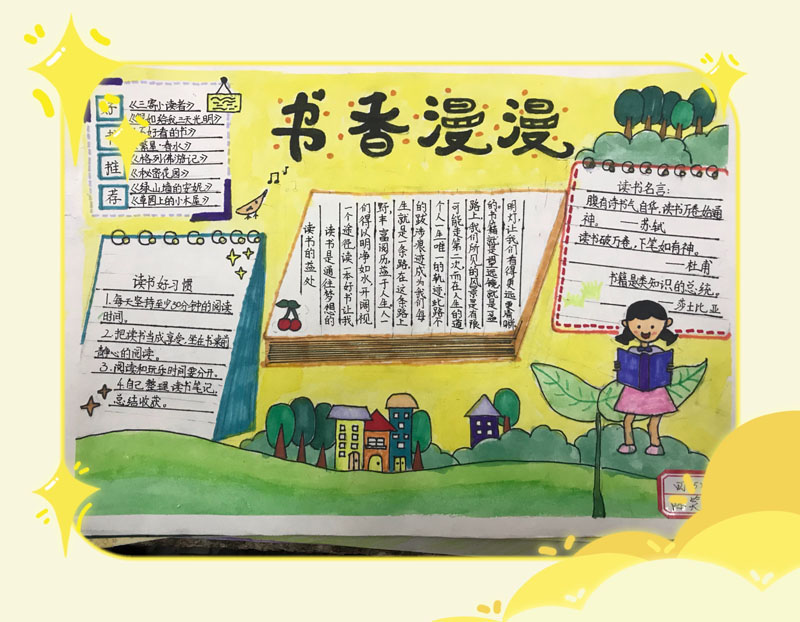 书香漫漫
推
荐
《三寄小读者》
如给我三天光明》
好看的书》
繁星·春水》
《格列佛游记》
《秘密花园》
《绿山墙的安妮》
《草圆上的小木屋》
读书好习惯
1.每天坚持至少30分钟的阅读
时间。
2.把读书当成享受,坐在书桌前
静心的阅读。
3.阅读和玩乐时间要分开。
4.自己整理读书笔记,
总结收获。
读书的益处
读书是通往梦想的
一个途径读一本好书让我
们得以明净如水开阔视
野丰富阅历益于人生人一
生就是一条路在这条路上
的跋涉痕迹成为我们每
个人一生唯一的轨迹此路不
可能走第二次而在人生的道
路上我们所见的风景是有限
的书籍就是望远镜就是盏
明灯,让我们看得更远更
读书名言:
腹有诗书气自华,读书万卷始通
神。 ——苏轼
读书破万卷,下笔如有神。
——杜甫
书籍是类知识的总统。
——莎士比亚